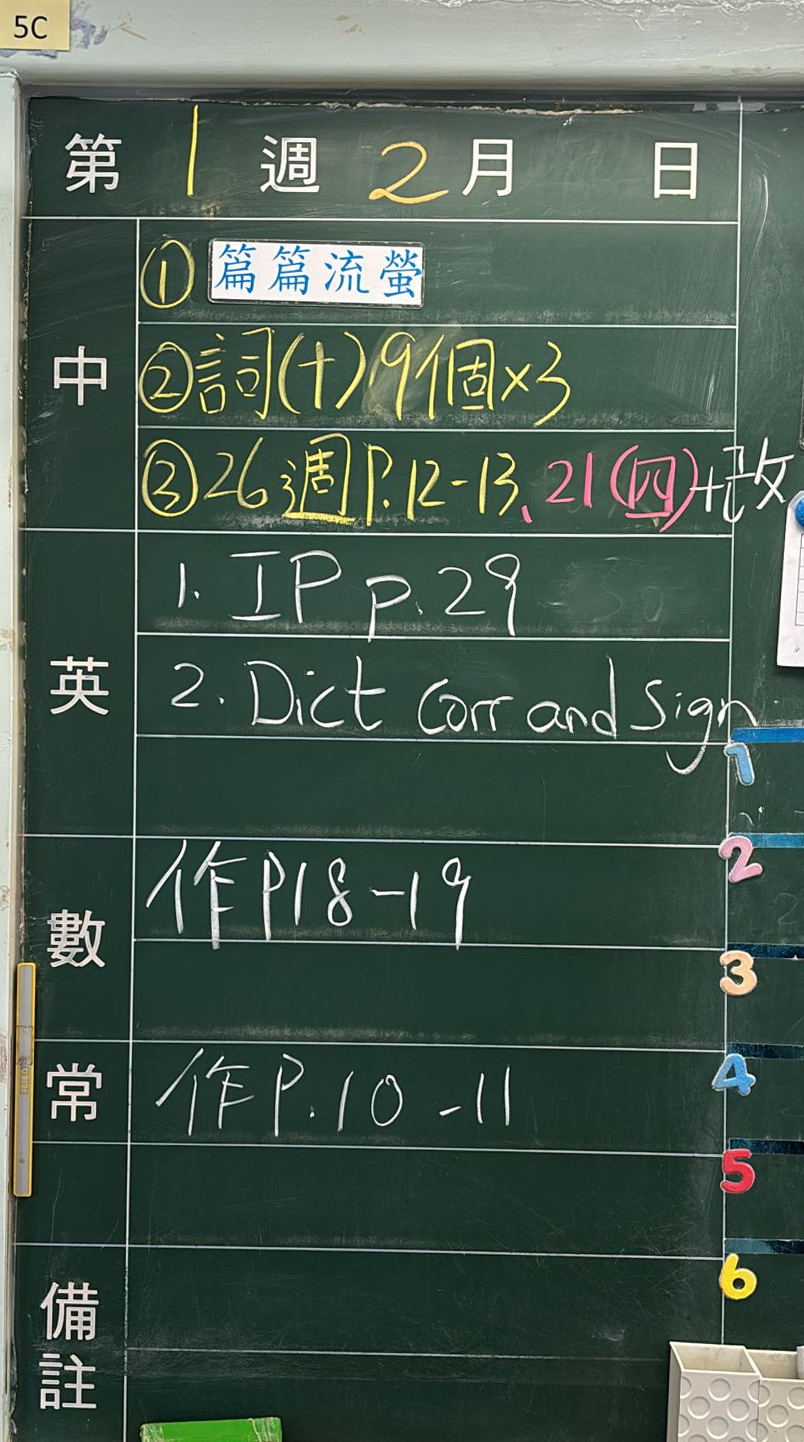 5C
第 1 週 2 月 日
中
① 篇篇流螢
② 詞(十)9個×3
③ 26週P.12-13、21(四)+改
英
1. IP p.29
2. Dict Corr and sign
數
作P18-19
常
作P.10-11
備註
1
2
3
4
5
6